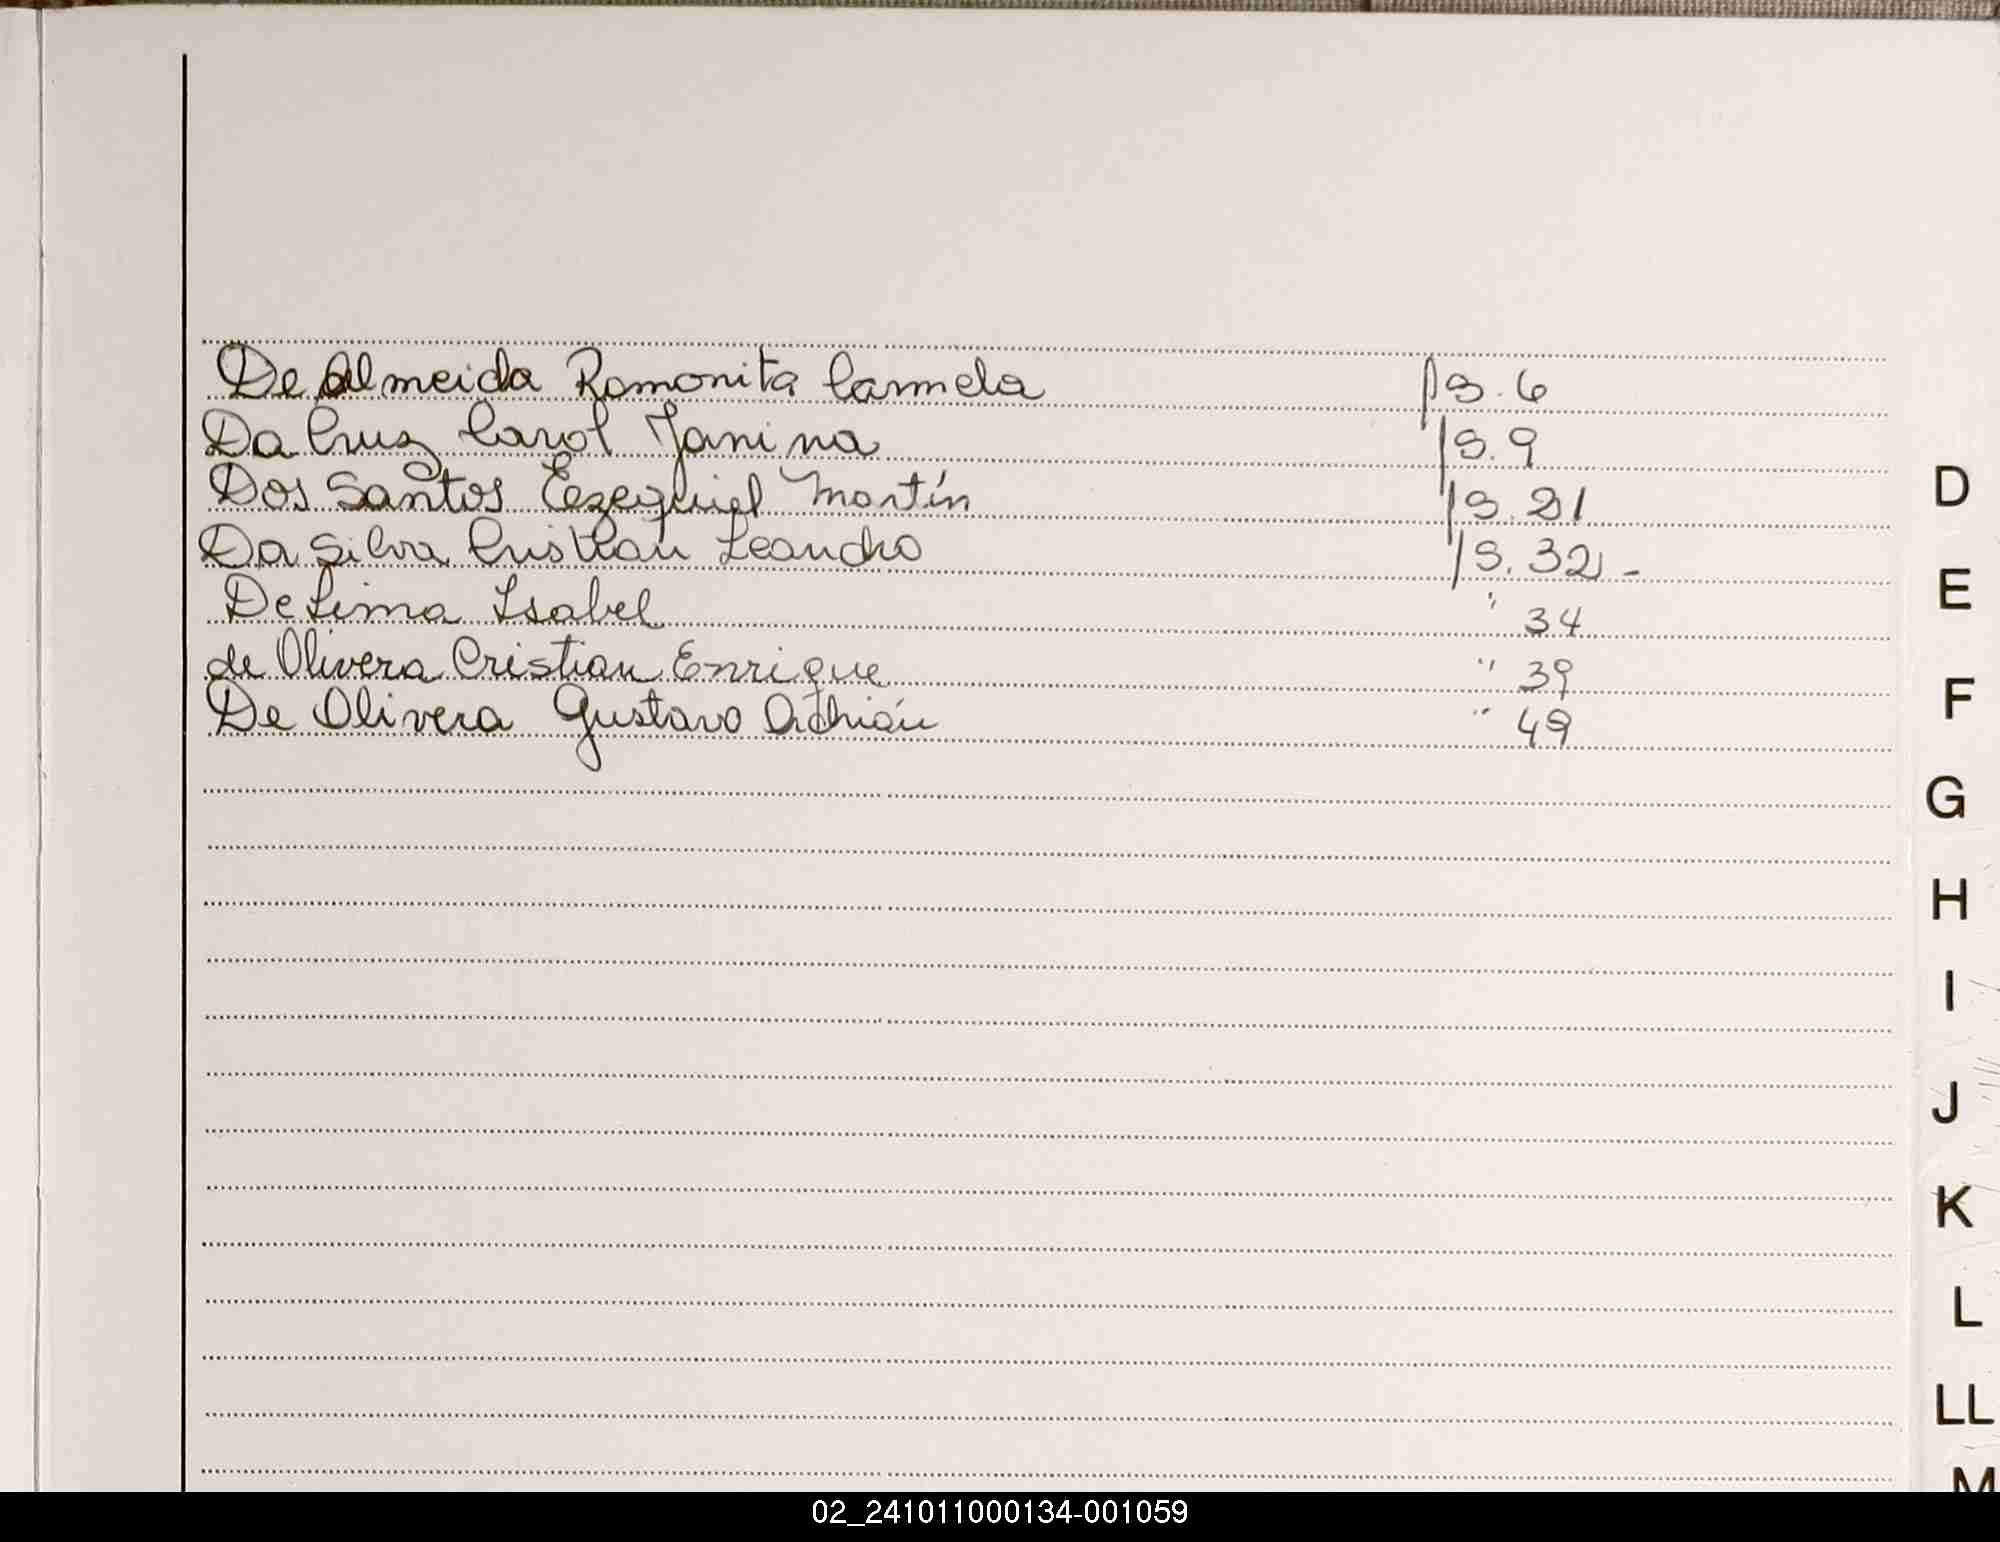 De Almeida Ramonita Carmela pg. 6
Da Cruz Carol Janina pg. 9
Dos Santos Ezequiel Martín pg. 21
Da Silva Cristian Leandro pg. 32 -
De Lima Isabel " 34
de Olivera Cristian Enrique " 39
De Olivera Gustavo Adrián " 49
D
E
F
G
H
I
J
K
L
LL
M
02_241011000134-001059